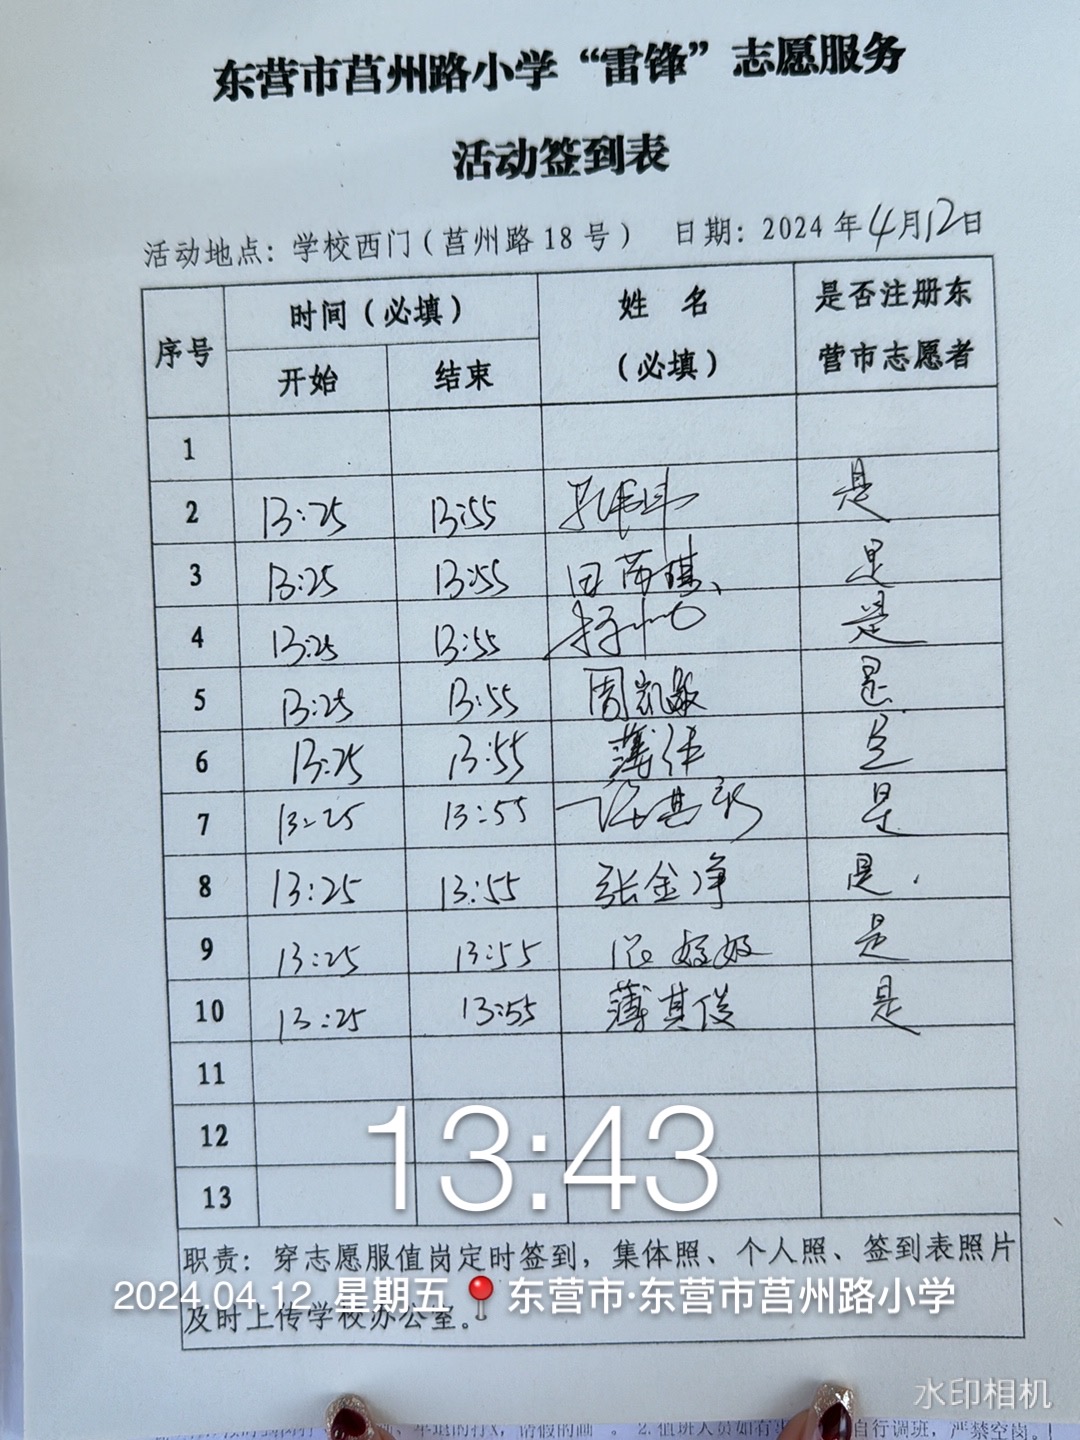 东营市莒州路小学“雷锋”志愿服务
活动签到表
活动地点：学校西门（莒州路18号） 日期：2024年4月12日
序号 时间（必填） 姓 名（必填） 是否注册东营市志愿者
开始 结束
1
2 13:25 13:55 是
3 13:25 13:55 是
4 13:25 13:55 是
5 13:25 13:55 周凯敏 是
6 13:25 13:55 薄佳 是
7 13:25 13:55 是
8 13:25 13:55 张金净 是
9 13:25 13:55 是
10 13:25 13:55 薄其俊 是
11
12
13
13:43
职责：穿志愿服值岗定时签到，集体照、个人照、签到表照片
及时上传学校办公室。
2024.04.12 星期五 东营市·东营市莒州路小学
水印相机
2.值班人员如有 自行调班，严禁空岗。